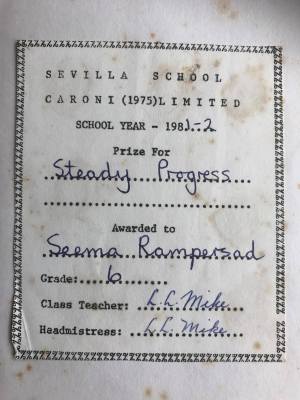 SEVILLA SCHOOL
CARONI (1975) LIMITED
SCHOOL YEAR - 1981-2
Prize For
Steady Progress
Awarded to
Seema Rampersad
Grade: 6
Class Teacher: L.L. Mike
Headmistress: L.L. Mike